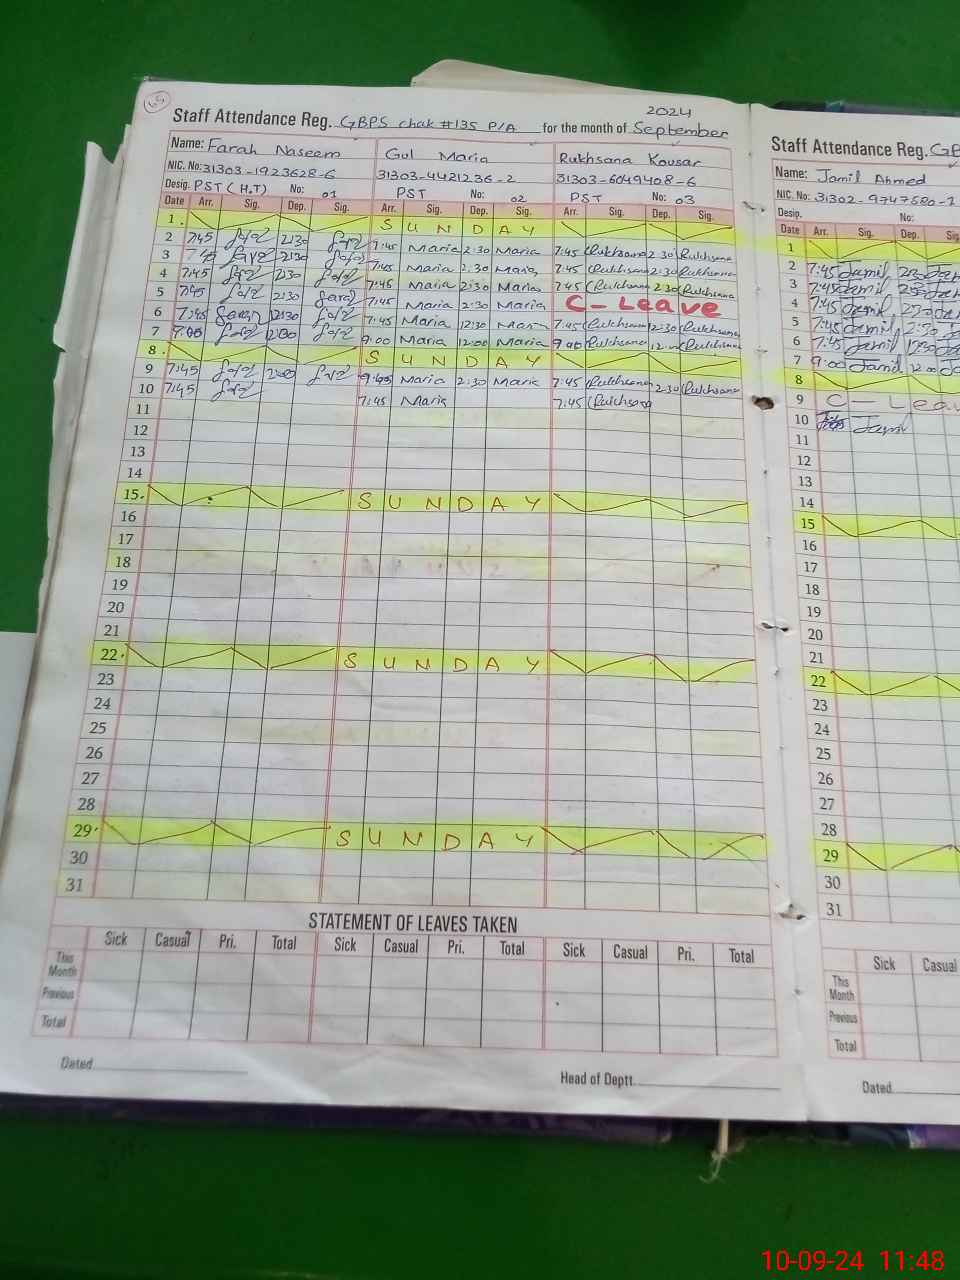 65
2024
Staff Attendance Reg. GBPS chak #135 P/A for the month of September
Name: Farah Naseem Gul Maria Rukhsana Kousar
NIC. No: 31303-1923628-6 31303-4421236-2 31303-6049408-6
Desig. PST (H.T) No: 01 PST No: 02 PST No: 03
Date Arr. Sig. Dep. Sig. Arr. Sig. Dep. Sig. Arr. Sig. Dep. Sig.
1. S U N D A Y
2 7:45 2:30 7:45 Maria 2:30 Maria 7:45 Rukhsana 2:30 Rukhsana
3 2:30 7:45 Maria 2:30 Maria 7:45 Rukhsana 2:30 Rukhsana
4 7:45 2:30 7:45 Maria 2:30 Maria 7:45 Rukhsana 2:30 Rukhsana
5 7:45 2:30 7:45 Maria 2:30 Maria C - Leave
6 7:45 12:30 7:45 Maria 12:30 Maria 7:45 Rukhsana 12:30 Rukhsana
7 9:00 Maria 12:00 Maria 9:00 Rukhsana Rukhsana
8. S U N D A Y
9 7:45 Maria 2:30 Maria 7:45 Rukhsana 2:30 Rukhsana
10 7:45 7:45 Maria 7:45 Rukhsana
11
12
13
14
15. S U N D A Y
16
17
18
19
20
21
22. S U N D A Y
23
24
25
26
27
28
29. S U N D A Y
30
31
STATEMENT OF LEAVES TAKEN
Sick Casual Pri. Total Sick Casual Pri. Total Sick Casual Pri. Total
This Month
Previous
Total
Dated
Head of Deptt.
Staff Attendance Reg. GB
Name: Jamil Ahmed
NIC. No: 31302-9747580-
Desig. No:
Date Arr. Sig. Dep. Sig.
1
2 7:45 Jamil
3 7:45 Jamil
4 7:45 Jamil
5 7:45 Jamil 2:30
6 7:45 Jamil 12:30
7 9:00 Jamil 12:00
8
9 C - Leav
10 Jamil
11
12
13
14
15
16
17
18
19
20
21
22
23
24
25
26
27
28
29
30
31
Sick Casual
This Month
Previous
Total
Dated
10-09-24 11:48